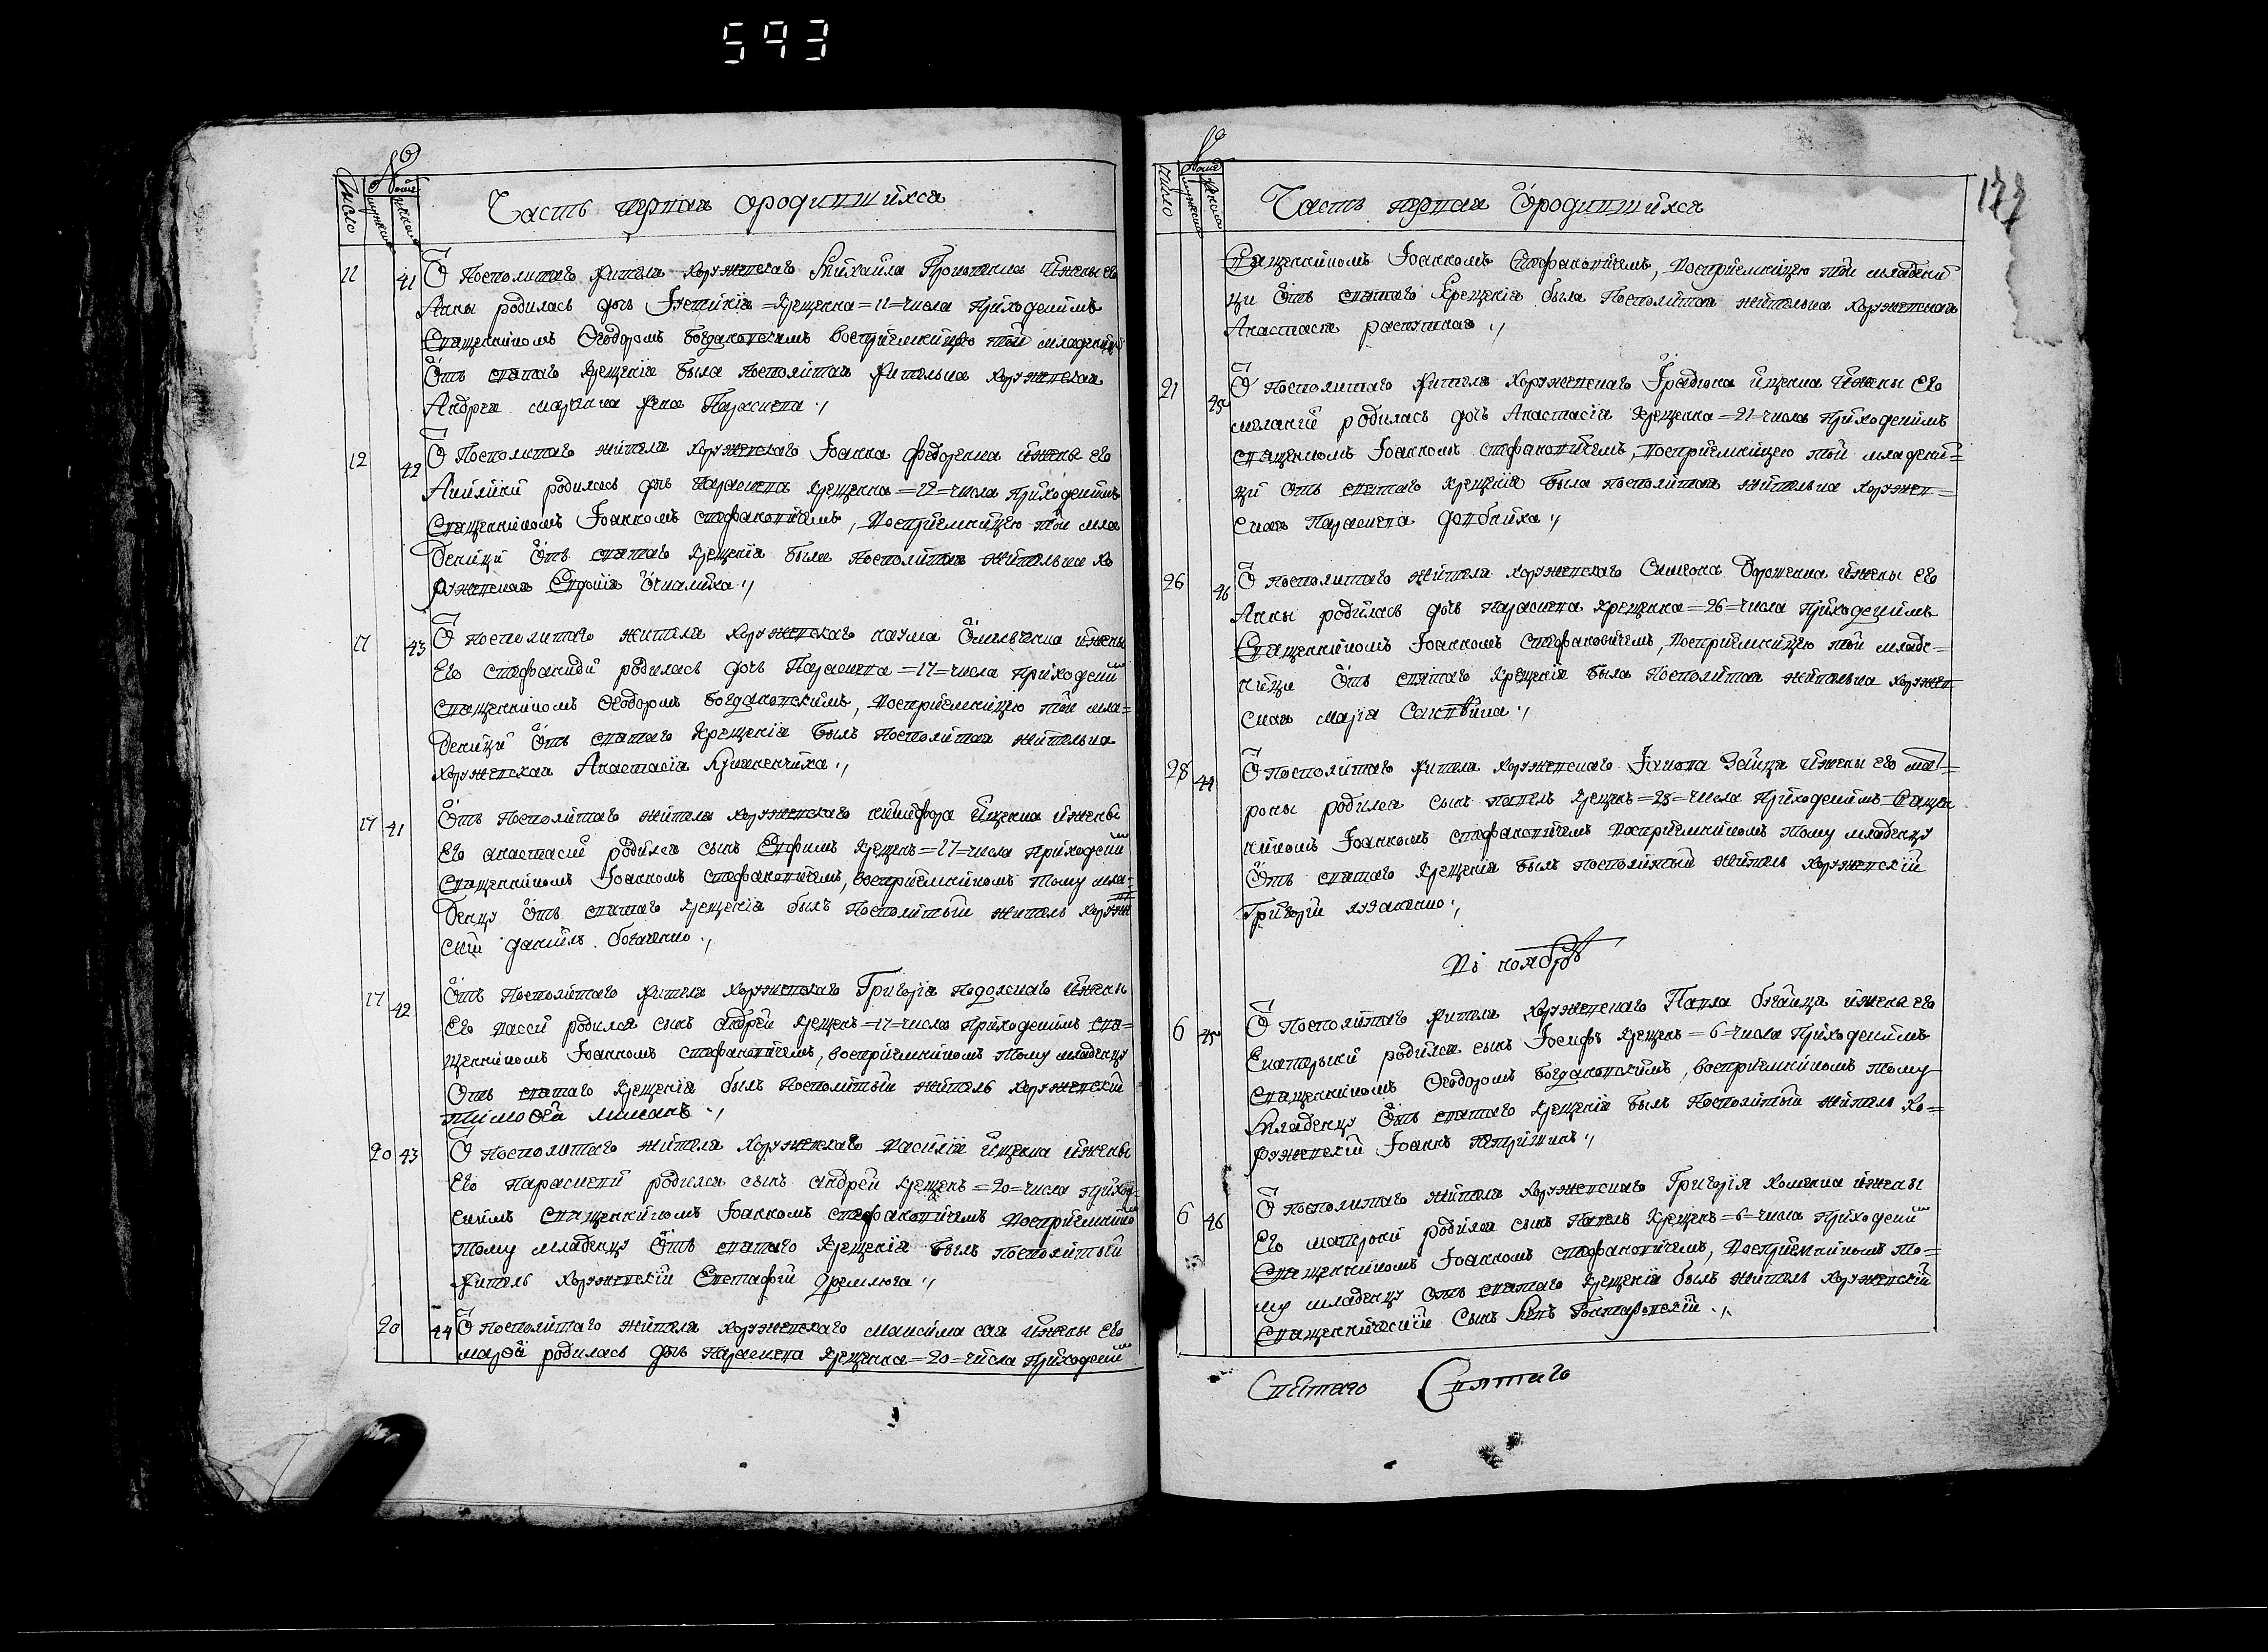 593
№
Число
Часть первая ородившихся
11 41 Ѿ Посполитаго жителя хоружевскаго Михаила Прокопенка ижены его
Анны родилась дочь Іѵстинія =крещенна=11=числа Приходскимъ
Священникомъ Ѳеодоромъ Богдановскимъ восприемницею той младеницы
Ѿтъ святаго крещенія была посполитая жителька хоружевская
Андрея жена Параскева
12 42 Ѿ Посполитаго жителя хоружевскаго Іоанна Федоренка ижены его
родилась дочь Параскева крещенна=12=числа приходскимъ
Священникомъ Іоанномъ стефановичемъ, восприемницею той мла
деници Ѿтъ святаго крещенія была посполитая жителька хо
ружевская Евдокія
17 43 Ѿ посполитаго жителя хоружевскаго наума Омельченка ижены
Его стефаниди родилась дочь Параскева =17=числа приходским
священникомъ Ѳеодоромъ Богдановскимъ, восприемницею той мла=
деници Ѿтъ святаго крещенія Былъ посполитая жителька
хоружевская Анастасія
17 41 Ѿтъ посполитаго жителя хоружевскаго никифора Ищенка ижены
Его анастасіи родился сынъ Евфимъ крещенъ=17=числа приходским
Священникомъ Іоанномъ стефановичемъ, восприемникомъ тому мла=
денцу Ѿтъ святаго крещенія былъ посполитый житель хоружев
скій даниилъ Богаченко
17 42 Ѿтъ посполитаго жителя хоружевскаго Григорія подолскаго ижены
Его васси родился сынъ андрей крещенъ=17=числа приходскимъ свя=
щенникомъ Іоанномъ стефановичемъ, восприемникомъ тому младенцу
Ѿтъ святаго крещенія былъ посполитый житель хоружевскій
тимоѳей
20 43 Ѿ посполитаго жителя хоружевскаго василія ищенка ижены
Его параскеви родился сынъ андрей крещенъ=20=числа приход=
скимъ священникомъ Іоанномъ стефановичемъ восприемником
тому младенцу Ѿтъ святаго крещенія былъ посполитый
житель хоружевскій Евстафій дремлюга
20 44 Ѿ посполитаго жителя хоружевскаго максима сая ижены его
марѳи родилась дочь параскева крещенна=20=числа приходским
№
Число
Часть первая Ѽродившихся
177
Священникомъ Іоанномъ Стефановичемъ, восприемницею той младени
ци Ѿтъ святаго Крещенія была Посполитая жителька хоружевская
Анастасія
21 45 Ѿ посполитаго жителя хоружевскаго Ѵрадіона ищенка ижены его
меланіи родилась дочь Анастасія крещенна=21=числа приходскимъ
священником Іоанномъ стефановичемъ, восприемницею той младени=
ци Ѿтъ святаго крещенія Была посполитая жителька хоружев=
ская Параскева довбниха
26 46 Ѿ посполитаго жителя хоружевскаго Симеона Дорошенка ижены его
Анны родилась дочь параскева крещенна=26=числа приходскимъ
Священникомъ Іоанномъ Стефановичемъ, восприемницею той младе=
ници Ѿтъ святаго крещенія была посполитая жителька хоружев
ская марія
28 44 Ѿ посполитаго жителя хоружевскаго Іакова Зайца ижены его мат=
роны родился сынъ павелъ крещенъ=28=числа приходскимъ священ
никомъ Іоанномъ стефановичемъ восприемникомъ тому младенцу
Ѿтъ святаго крещенія былъ посполитый житель хоружевскій
Григорій
Въ ноябрѣ
6 45 Ѿ посполитаго жителя хоружевскаго Павла ижены его
Екатерыны родился сынъ Іосифъ крещенъ=6=числа приходскимъ
Священникомъ Ѳеодоромъ Богдановскимъ, восприемникомъ тому
Младенцу Ѿтъ святаго крещенія былъ посполитый житель хо=
ружевскій Іоаннъ
6 46 Ѿ посполитаго жителя хоружевскаго Григорія хоменка ижены
Его матроны родился сынъ павелъ крещенъ=6=числа приходским
Священникомъ Іоанномъ стефановичемъ, восприемникомъ то=
му младенцу Ѿтъ святаго крещенія былъ житель хоружевскій
Священническій Сынъ
Святаго Святаго